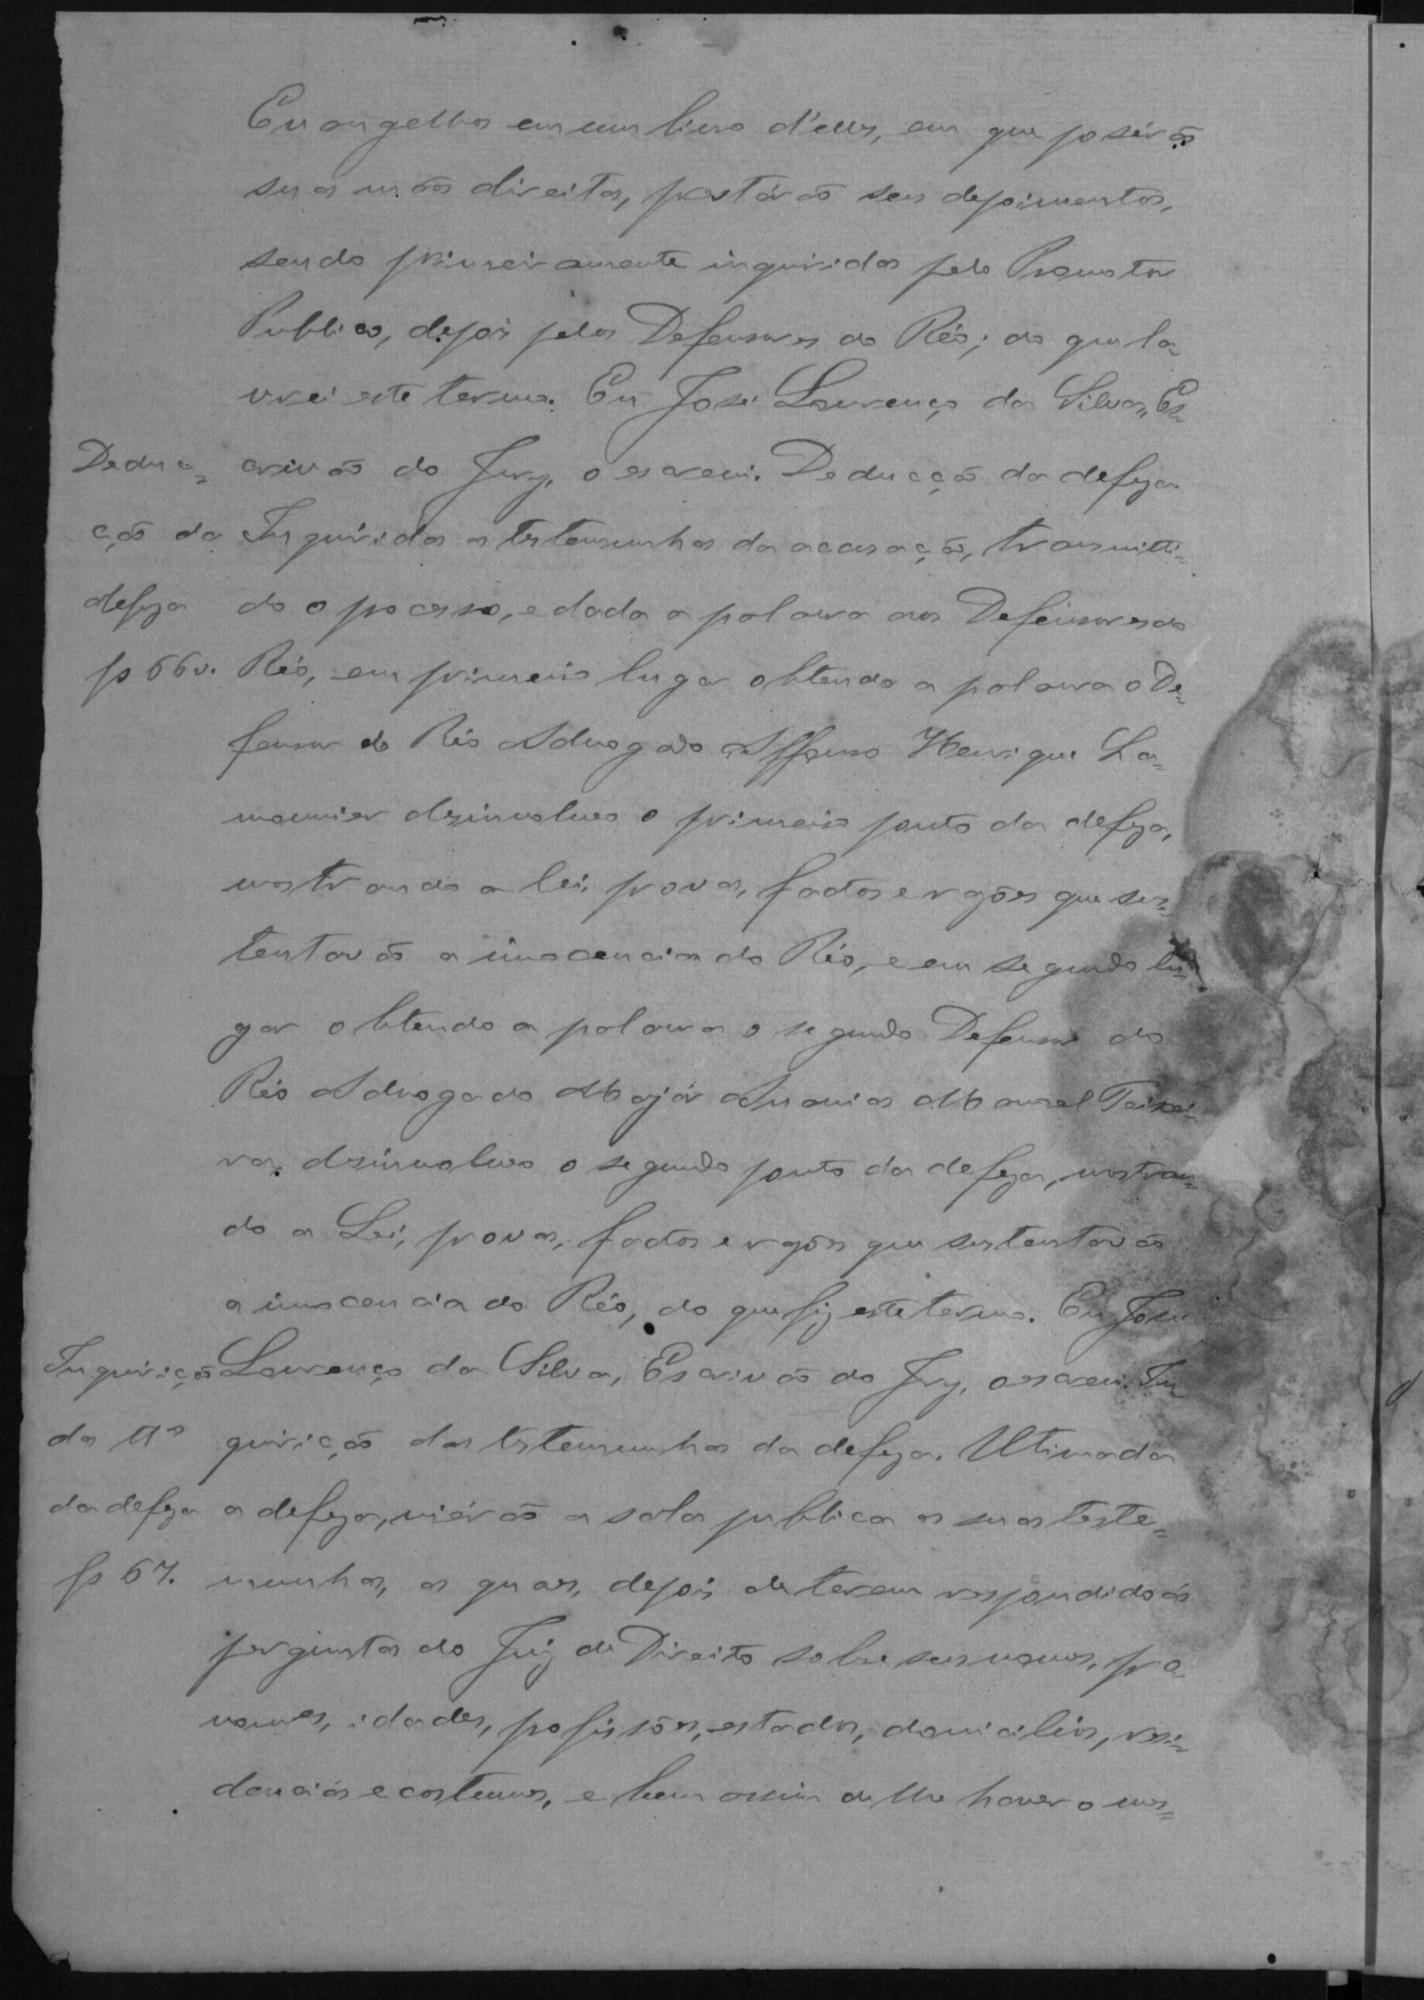 Evangelhos em um livro d'elles, em que poserão
suas mãos direitas, prestárão seus depoimentos,
sendo primeiramente inquiridas pelo Promotor
Publico, depois pelos Defensores do Réo; do que la-
vrei este termo. Eu José Lourenço da Silva, Es-
Deduc- crivão do Jury, o escrevi. Deducção da defeza
ção da Inquiridas as testemunhas da accusação, transmitti-
defeza do o processo, e dada a palavra aos Defensores do
fs 66v. Réo, em primeiro lugar obtendo a palavra o De-
fensor do Réo Advogado Affonso Henrique La-
mounier desinvolveo o primeiro ponto da defeza,
mostrando a lei, provas, factos e rasões que sus-
tentavão a innocencia do Réo, e em segundo lu-
gar obtendo a palavra o segundo Defensor do
Réo Advogado Major Ananias Manoel Teixei-
ra, desinvolveo o segundo ponto da defeza, mostran-
do a Lei, provas, factos e rasões que sustentavão
a innocencia do Réo, do que fiz este termo. Eu José
Inquirição Lourenço da Silva, Escrivão do Jury, o escrevi. In-
das quirição das testemunhas da defeza. Ultimada
da defeza a defeza, viérão a sala publica as suas teste-
fs 67. munhas, as quaes, depois de terem respondido ás
perguntas do Juiz de Direito sobre seus nomes, pro-
nomes, idades, profissões, estados, domicilios, resi-
dencias e costumes, e bem assim de lhe haver o mes-